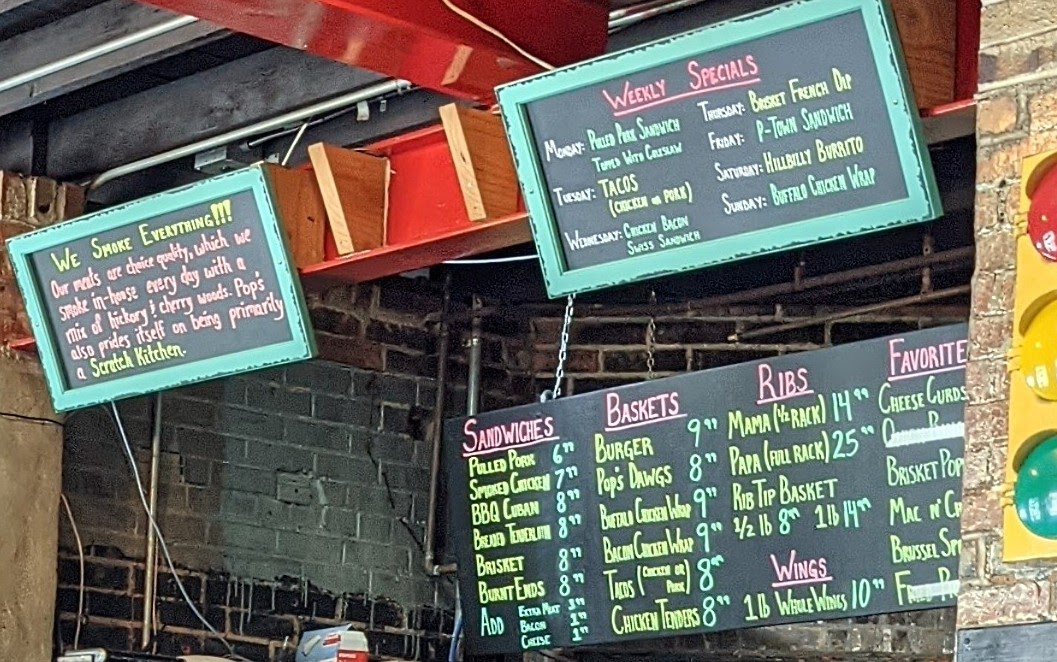 We Smoke Everything!!!
Our meats are choice quality, which we
smoke in-house every day with a
mix of hickory & cherry woods. Pop's
also prides itself on being primarily
a Scratch Kitchen.
Weekly Specials
Monday: Pulled Pork Sandwich
Topped With Coleslaw
Tuesday: Tacos
(Chicken or Pork)
Wednesday: Chicken Bacon
Swiss Sandwich
Thursday: Brisket French Dip
Friday: P-Town Sandwich
Saturday: Hillbilly Burrito
Sunday: Buffalo Chicken Wrap
Sandwiches
Pulled Pork 6⁹⁹
Smoked Chicken 7⁹⁹
BBQ Cuban 8⁹⁹
Breaded Tenderloin 8⁹⁹
Brisket 8⁹⁹
Burnt Ends 8⁹⁹
Add Extra Meat 3⁹⁹
Bacon 1⁹⁹
Cheese 1⁹⁹
Baskets
Burger 9⁹⁹
Pop's Dawgs 8⁹⁹
Buffalo Chicken Wrap 9⁹⁹
Bacon Chicken Wrap 9⁹⁹
Tacos (Chicken or Pork) 8⁹⁹
Chicken Tenders 8⁹⁹
Ribs
Mama (½ Rack) 14⁹⁹
Papa (Full Rack) 25⁹⁹
Rib Tip Basket
1/2 lb 8⁹⁹ 1 lb 14⁹⁹
Wings
1 lb Whole Wings 10⁹⁹
Favorite
Cheese Curds
Brisket Pop
Mac n' Ch
Brussel Sp